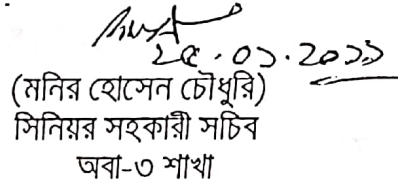 ২৫.০১.২০১১
(মনির হোসেন চৌধুরি)
সিনিয়র সহকারী সচিব
অবা-৩ শাখা